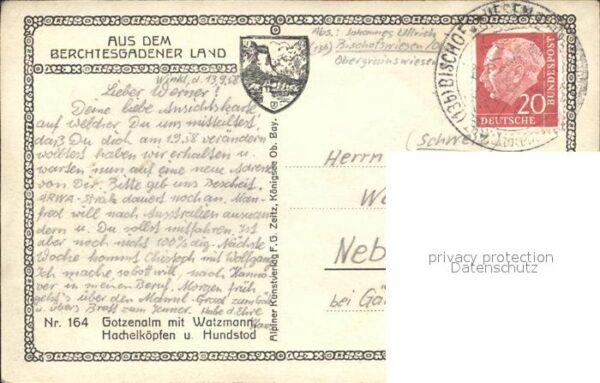 AUS DEM
BERCHTESGADENER LAND
Abs.: Johannes Ullrich
(13b) Bischofswiesen/O
Obergrainswiesen
Winkl, d. 13.9.58
Lieber Werner!
Deine liebe Ansichtskarte
auf welcher Du uns mitteiltest,
daß Du dich am 1.9.58 verändern
wolltest haben wir erhalten u.
warten nun auf eine neue Adresse
von Dir. Bitte gib uns Bescheid.
dauert noch an. Man-
fred will nach Australien auswan-
dern u. Du sollst mitfahren. Ist
aber noch nicht 100%ig. Nächste
Woche kommt mit Wolfgang
Ich mache sobald will, nach Hanno-
ver in meinen Beruf. Morgen früh
geht's über den
u. übers Brett zum
Nr. 164 Gotzenalm mit Watzmann,
Hachelköpfen u. Hundstod
Alpiner Kunstverlag F. G. Zeitz, Königsee Ob. Bay.
(13b) BISCHOFSWIESEN
20
DEUTSCHE
BUNDESPOST
(Schwei
Herrn
We
Neb
bei Gä
privacy protection
Datenschutz